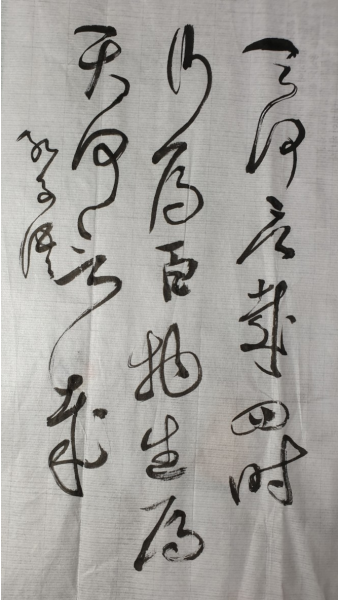 天何言哉四时
行焉百物生焉
天何言哉
孔子语